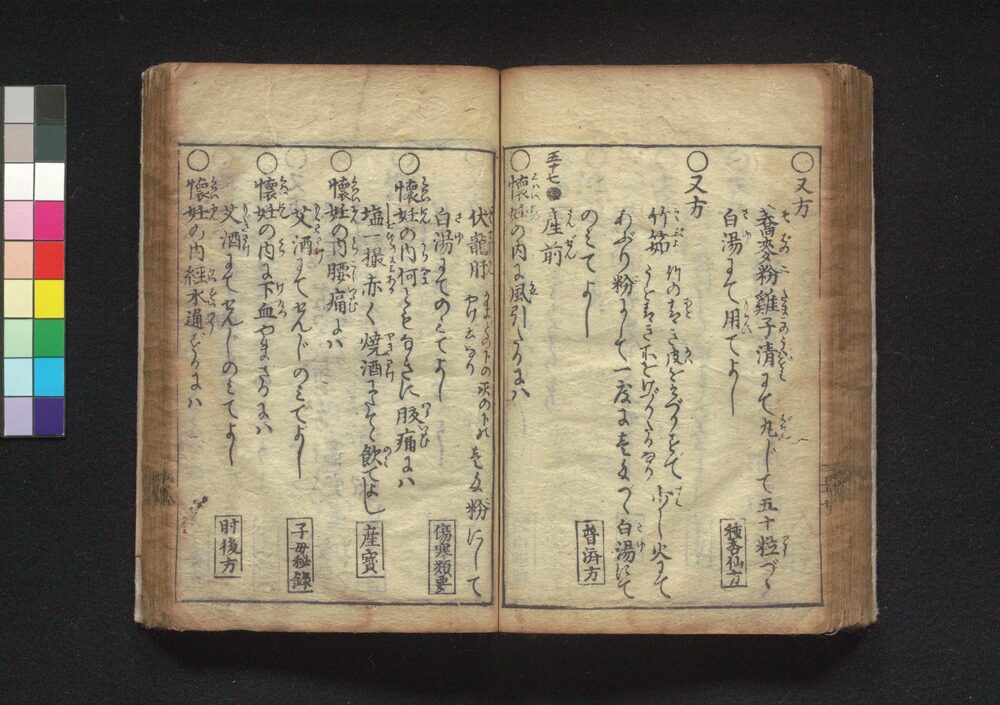 ○又方
蕎麦粉雞子清にて丸じて五十粒づゝ
白湯にて用てよし
種杏仙方
○又方
竹茹 竹のあをき皮をさりすて
うすあをき所をけづりたるなり 少し火にて
あぶり粉にして一度に壱匁づゝ白湯にて
のみてよし
普済方
五十七 産前
○懐妊の内に風引たるには
伏龍肝 かまどの下の灰の下の
やけ土なり 壱匁粉にして
白湯にてのみてよし
傷寒類要
○懐妊の内何ともなきに腹痛には
塩一撮赤く焼酒にたてゝ飲てよし
産宝
○懐妊の内腰痛には
艾酒にてせんじのみてよし
子母秘録
○懐妊の内に下血やまざるには
艾酒にてせんじのみてよし
肘後方
○懐妊の内経水通ずるには